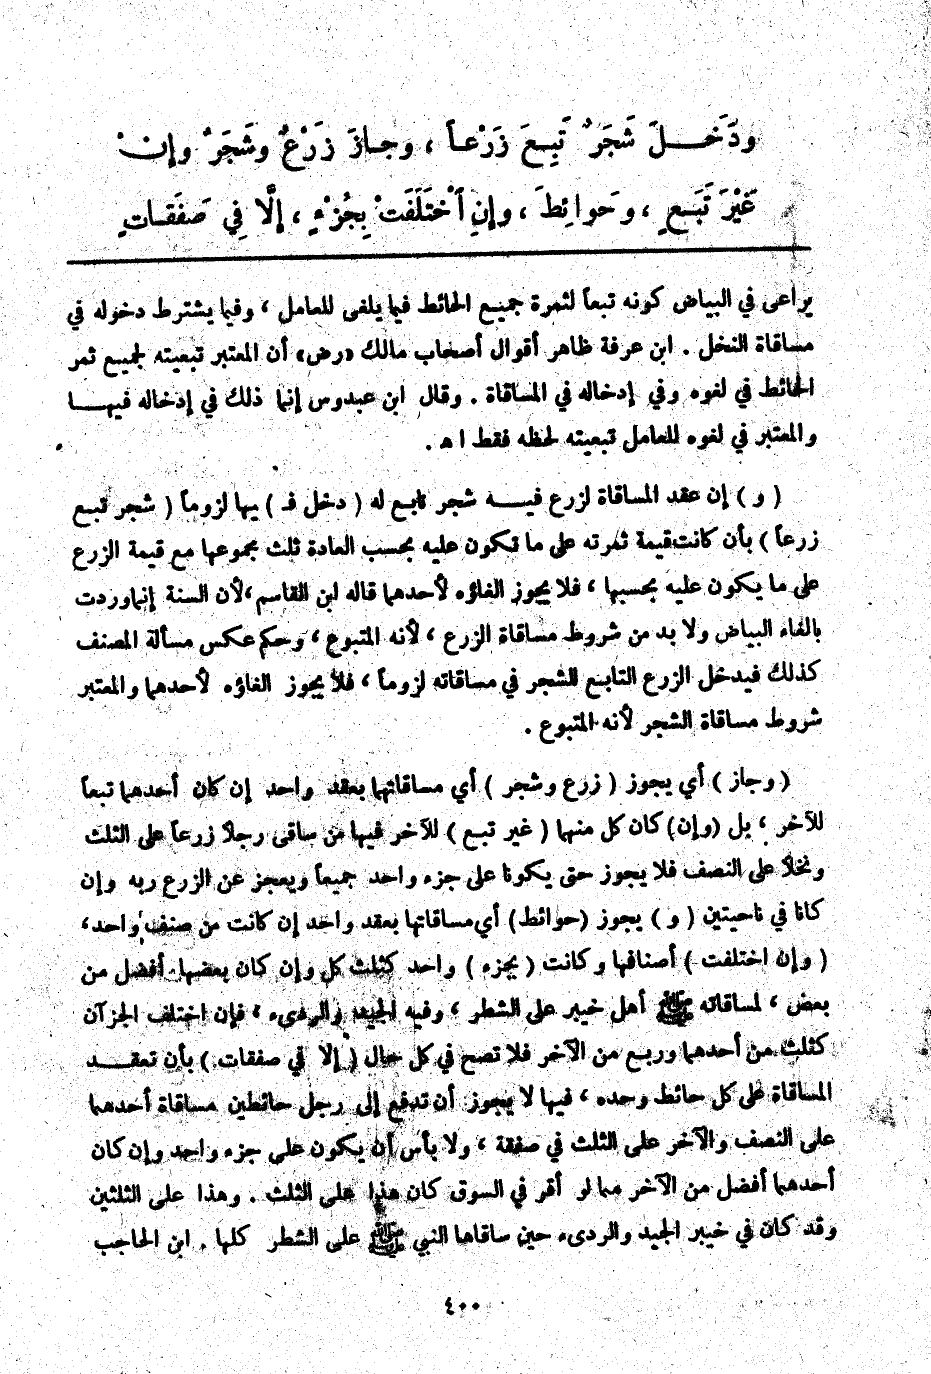 ودَخَـــلَ شَجَرٌ تَبِـعَ زَرْعـاً ، وجـازَ زَرْعٌ وشَجَرٌ وإنْ
غَيْرَ تَبَـعٍ ، وحَوائِطَ ، وإنِ اخْتَلَفَتْ بِجُزْءٍ ، إلّا فِي صَفَقـاتٍ
يراعى في البياض كونه تبعاً لثمرة جميع الحائط فيما يلغى للعامل ، وفيما يشترط دخوله في
مساقاة النخل . ابن عرفة ظاهر أقوال أصحاب مالك «رض» أن المعتبر تبعيته لجميع ثمر
الحائط في لغوه وفي إدخاله في المساقاة . وقال ابن عبدوس إنما ذلك في إدخاله فيهـــا
والمعتبر في لغوه للعامل تبعيته لحظه فقط ا ه .
( و ) إن عقد المساقاة لزرع فيـــه شجر تابع له ( دخل فـ ) ـيها لزوماً ( شجر تبـع
زرعاً ) بأن كانت قيمة ثمرته على ما تكون عليه بحسب العادة ثلث مجموعها مع قيمة الزرع
على ما يكون عليه بحسبها ، فلا يجوز الغاؤه لأحدهما قاله ابن القاسم ، لأن السنة إنما وردت
بالغاء البياض ولا بد من شروط مساقاة الزرع ، لأنه المتبوع ، وحكم عكس مسألة المصنف
كذلك فيدخل الزرع التابع للشجر في مساقاته لزوماً ، فلا يجوز الغاؤه لأحدهما والمعتبر
شروط مساقاة الشجر لأنه المتبوع .
( وجاز ) أي يجوز ( زرع وشجر ) أي مساقاتهما بعقد واحد إن كان أحدهما تبعاً
للآخر ، بل (وإن) كان كل منهما ( غير تبع ) للآخر فيها من ساقى رجلاً زرعاً على الثلث
ونخلاً على النصف فلا يجوز حتى يكونا على جزء واحد جميعاً ويعجز عن الزرع ربه وإن
كانا في ناحيتين ( و ) يجوز (حوائط) أي مساقاتها بعقد واحد إن كانت من صنف واحد،
( وإن اختلفت ) أصنافها وكانت ( بجزء ) واحد كثلث كل وإن كان بعضها أفضل من
بعض ، لمساقاته ﷺ أهل خيبر على الشطر ، وفيه الجيد والردىء ، فإن اختلف الجزآن
كثلث من أحدهما وربع من الآخر فلا تصح في كل حال ( إلا في صفقات ) بأن تعقـــد
المساقاة على كل حائط وحده ، فيها لا يجوز أن تدفع إلى رجل حائطين مساقاة أحدهما
على النصف والآخر على الثلث في صفقة ، ولا بأس أن يكون على جزء واحد وإن كان
أحدهما أفضل من الآخر مما لو أقر في السوق كان هذا على الثلث . وهذا على الثلثين
وقد كان في خيبر الجيد والردىء حين ساقاها النبي ﷺ على الشطر كلها . ابن الحاجب
٤٠٠